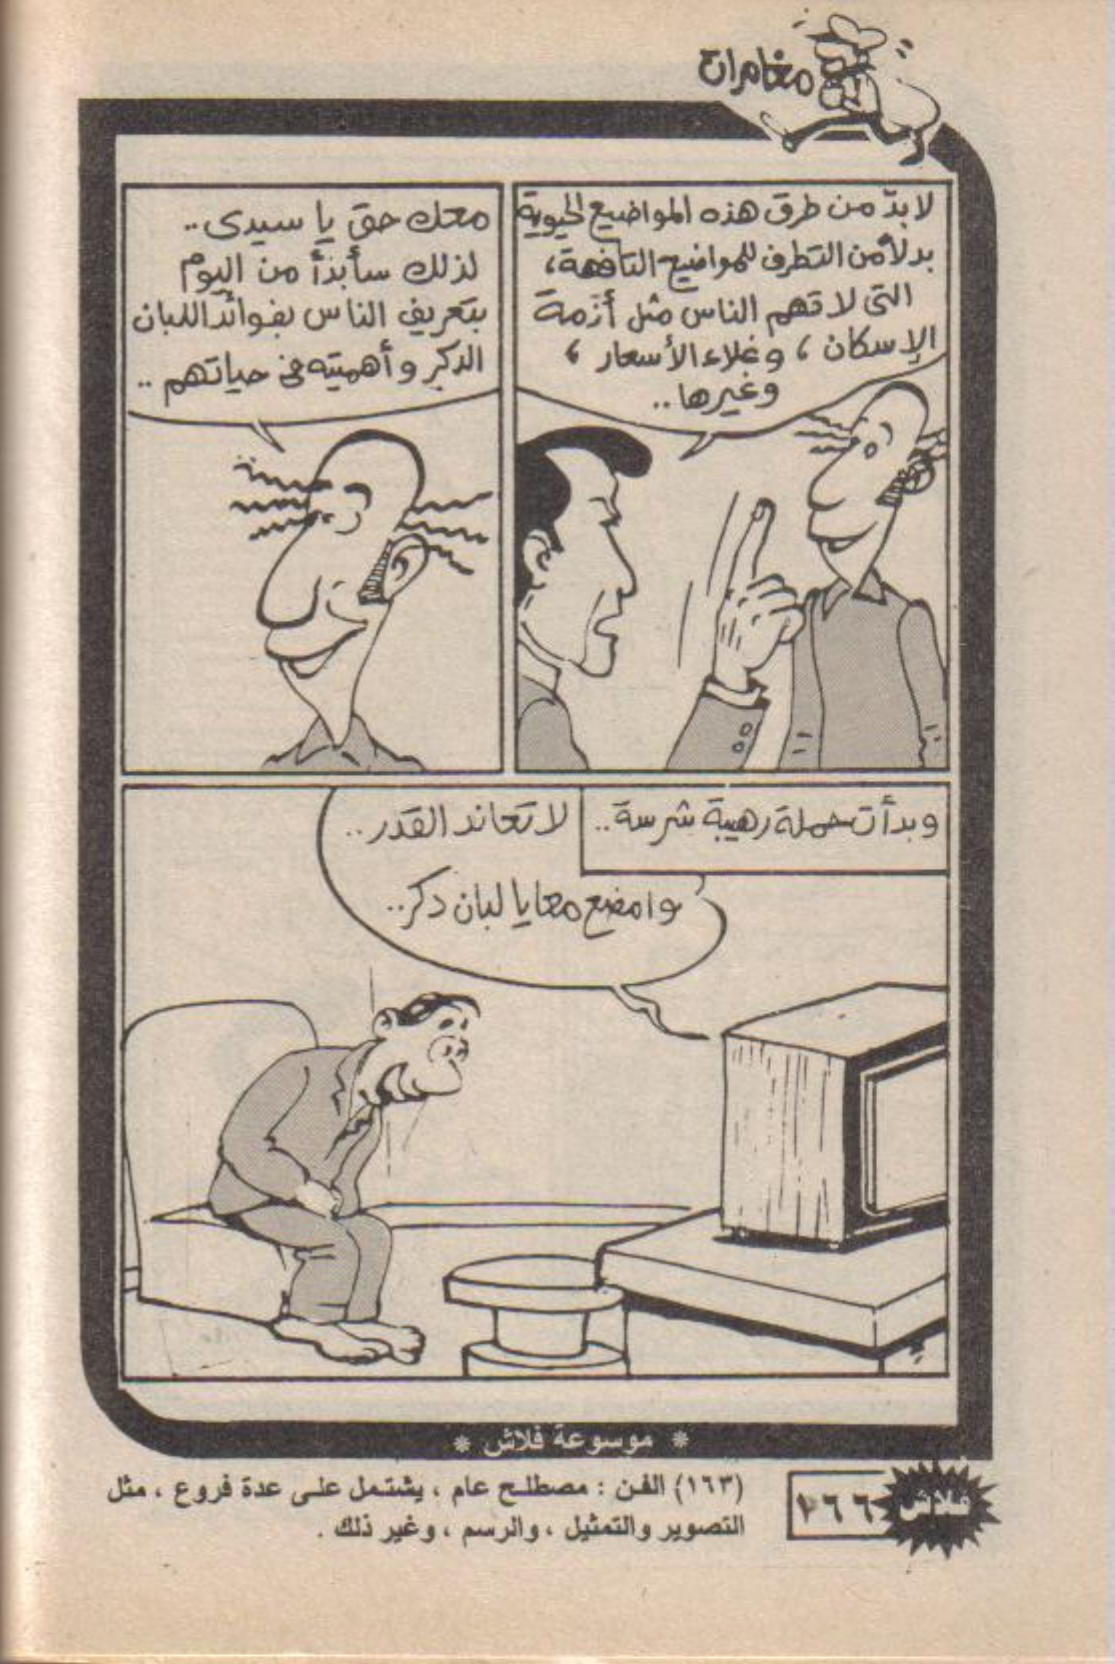 مغامرات
لابدّ من طرق هذه المواضيع الحيوية
بدلاً من التطرف للمواضيع التافهة،
التى لا تهم الناس مثل أزمة
الإسكان ، وغلاء الأسعار ،
وغيرها ..
معك حق يا سيدى ..
لذلك سأبدأ من اليوم
بتعريف الناس بفوائد اللبان
الدكر وأهميته فى حياتهم ..
وبدأت حملة رهيبة شرسة ..
لا تعاند القدر ..
وامضغ معايا لبان دكر ..
* موسوعة فلاش *
(١٦٣) الفن : مصطلح عام ، يشتمل على عدة فروع ، مثل
التصوير والتمثيل ، والرسم ، وغير ذلك .
١٦٦
فلاش